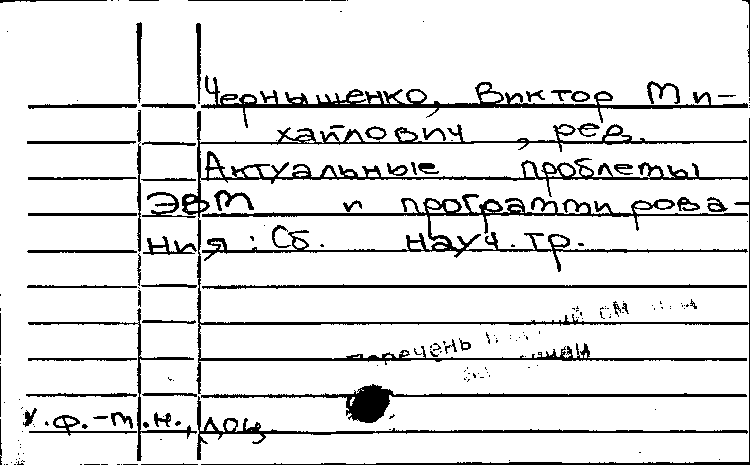 Чернышенко, Виктор Ми-
хайлович, ред.
Актуальные проблемы
ЭВМ и программирова-
ния : Сб. науч. тр.
Перечень см.
к.ф.-м.н., доц.